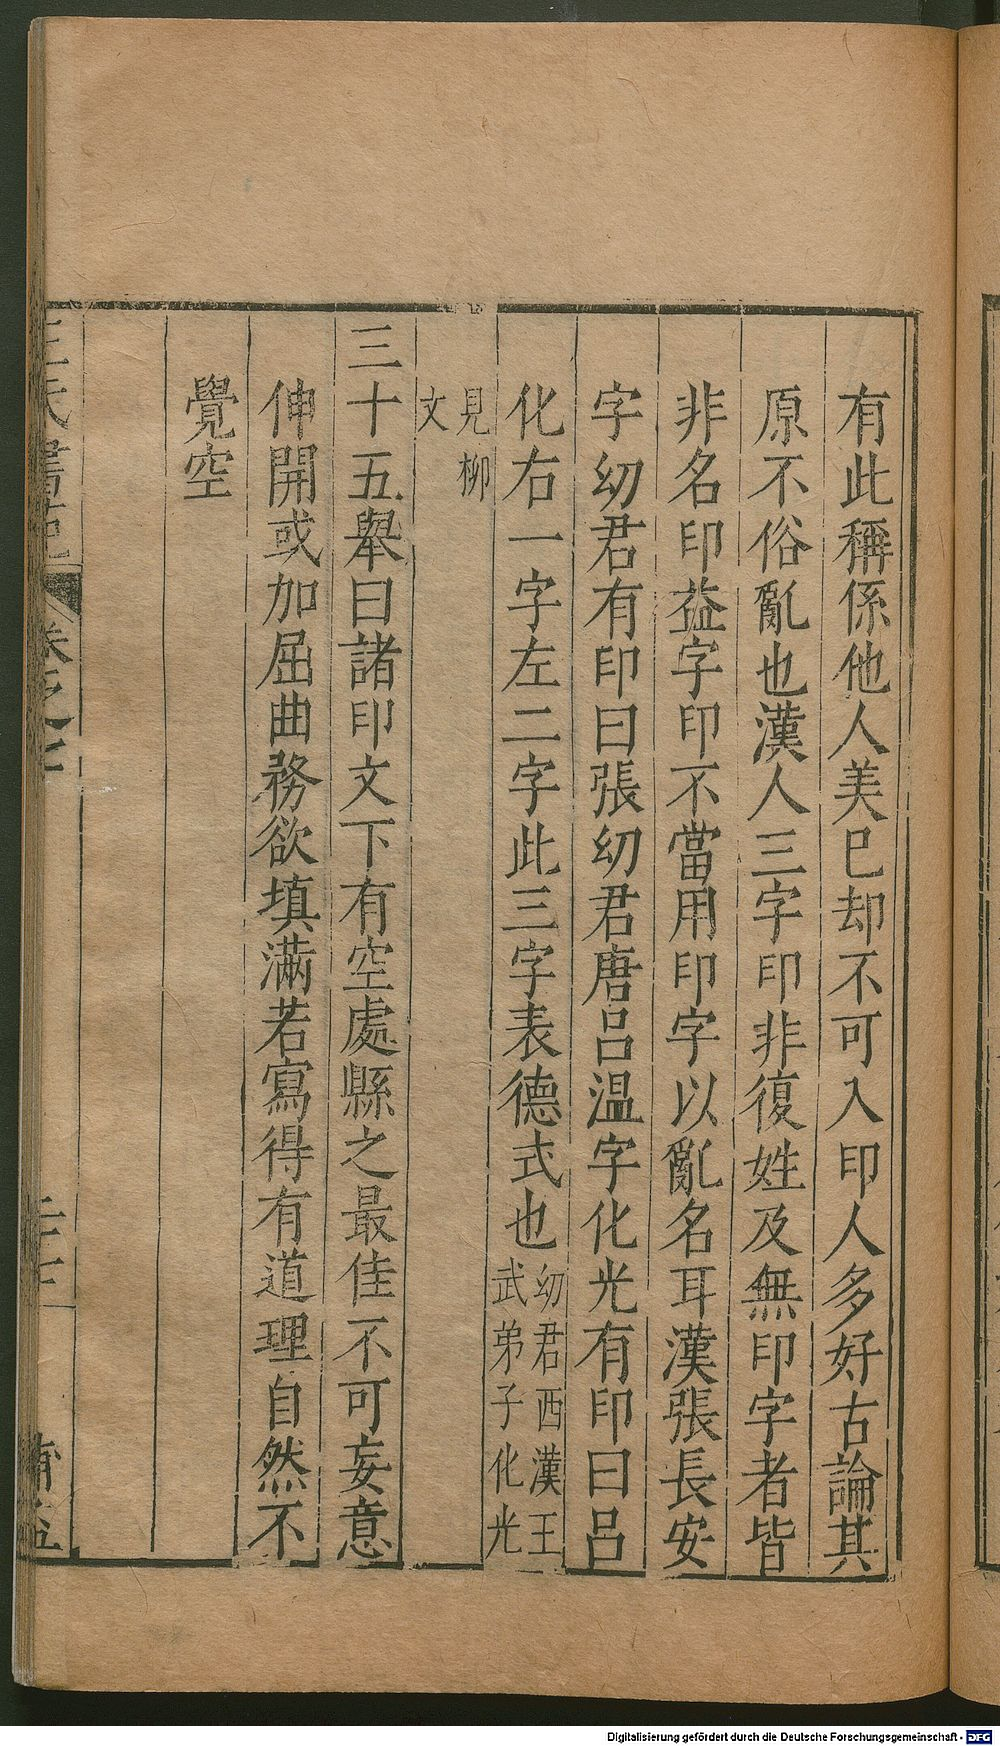 有此稱係他人美巳却不可入印人多好古論其
原不俗亂也漢人三字印非復姓及無印字者皆
非名印葢字印不當用印字以亂名耳漢張長安
字幼君有印曰張幼君唐呂溫字化光有印曰呂
化右一字左二字此三字表德式也幼君西漢王
武弟子化光
見柳
文
三十五舉曰諸印文下有空處縣之最佳不可妄意
伸開或加屈曲務欲填滿若寫得有道理自然不
覺空
王氏書苑
卷之七
二十七
Digitalisierung gefördert durch die Deutsche Forschungsgemeinschaft - DFG